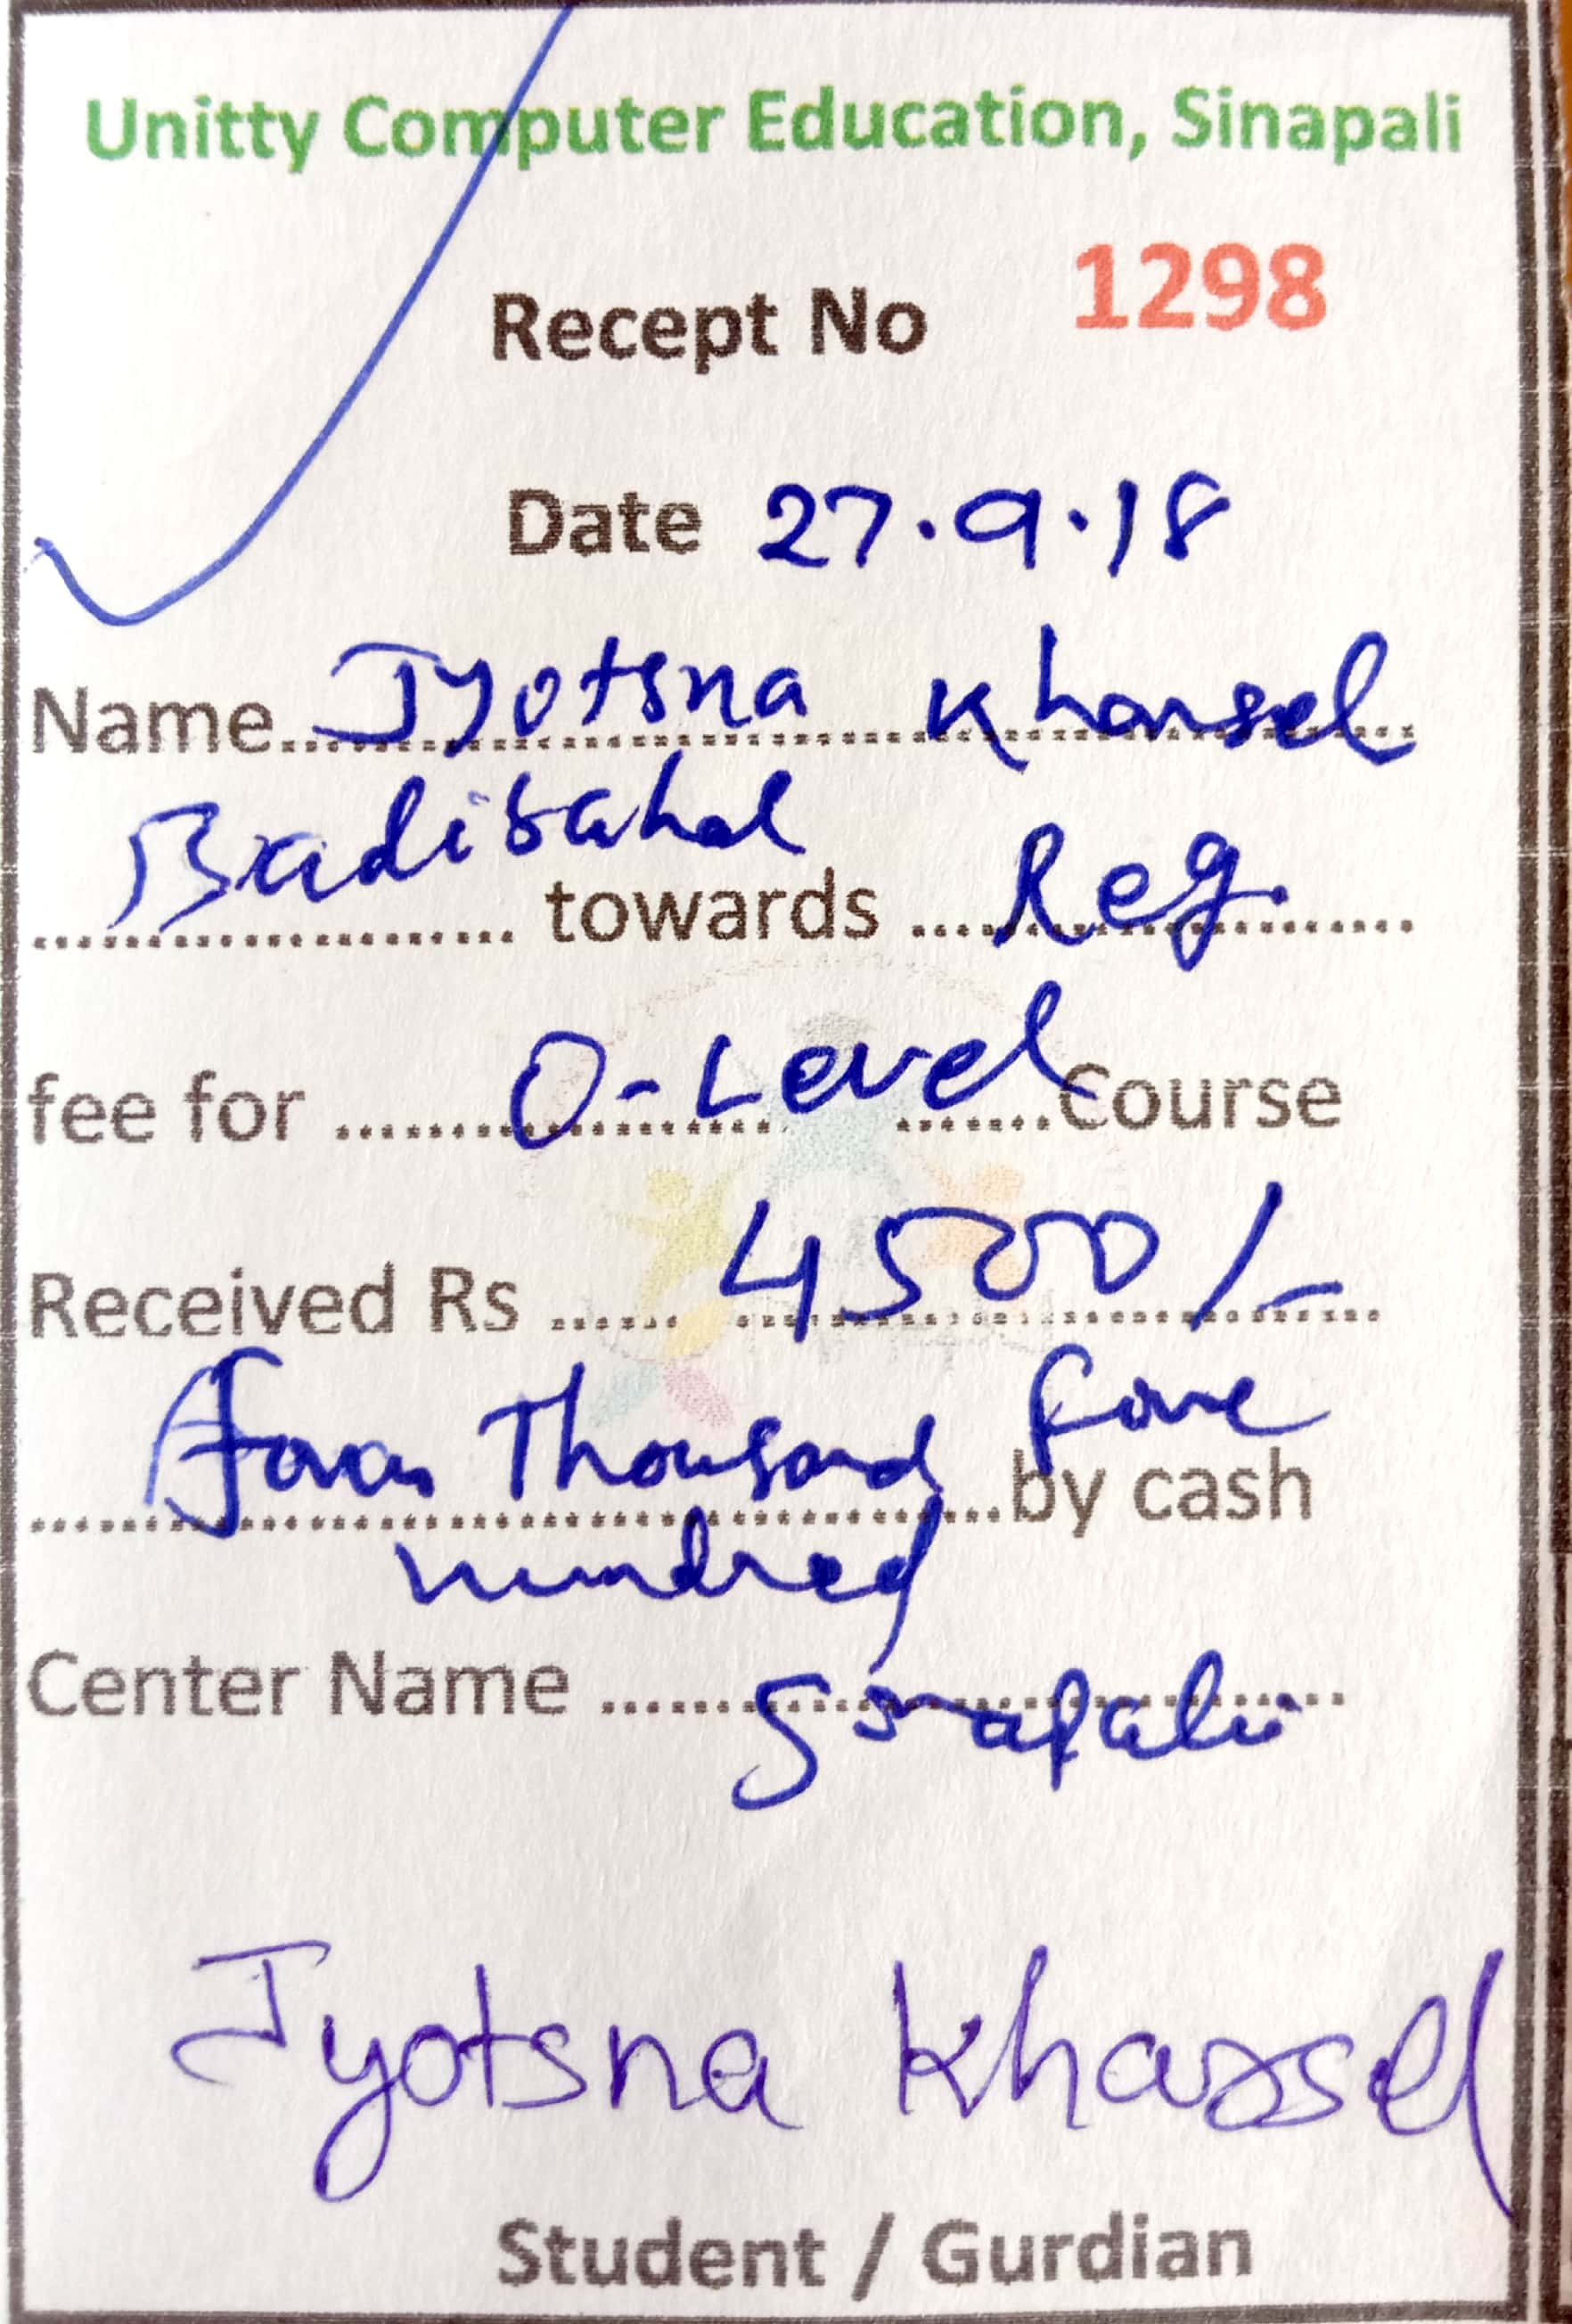 Unitty Computer Education, Sinapali
Recept No 1298
Date 27.9.18
Name Jyotsna Kharsel
Badibahal towards Reg.
fee for O-Level Course
Received Rs 4500/-
Thousand five
by cash
hundred
Center Name Sinapali
Jyotsna Kharsel
Student / Gurdian